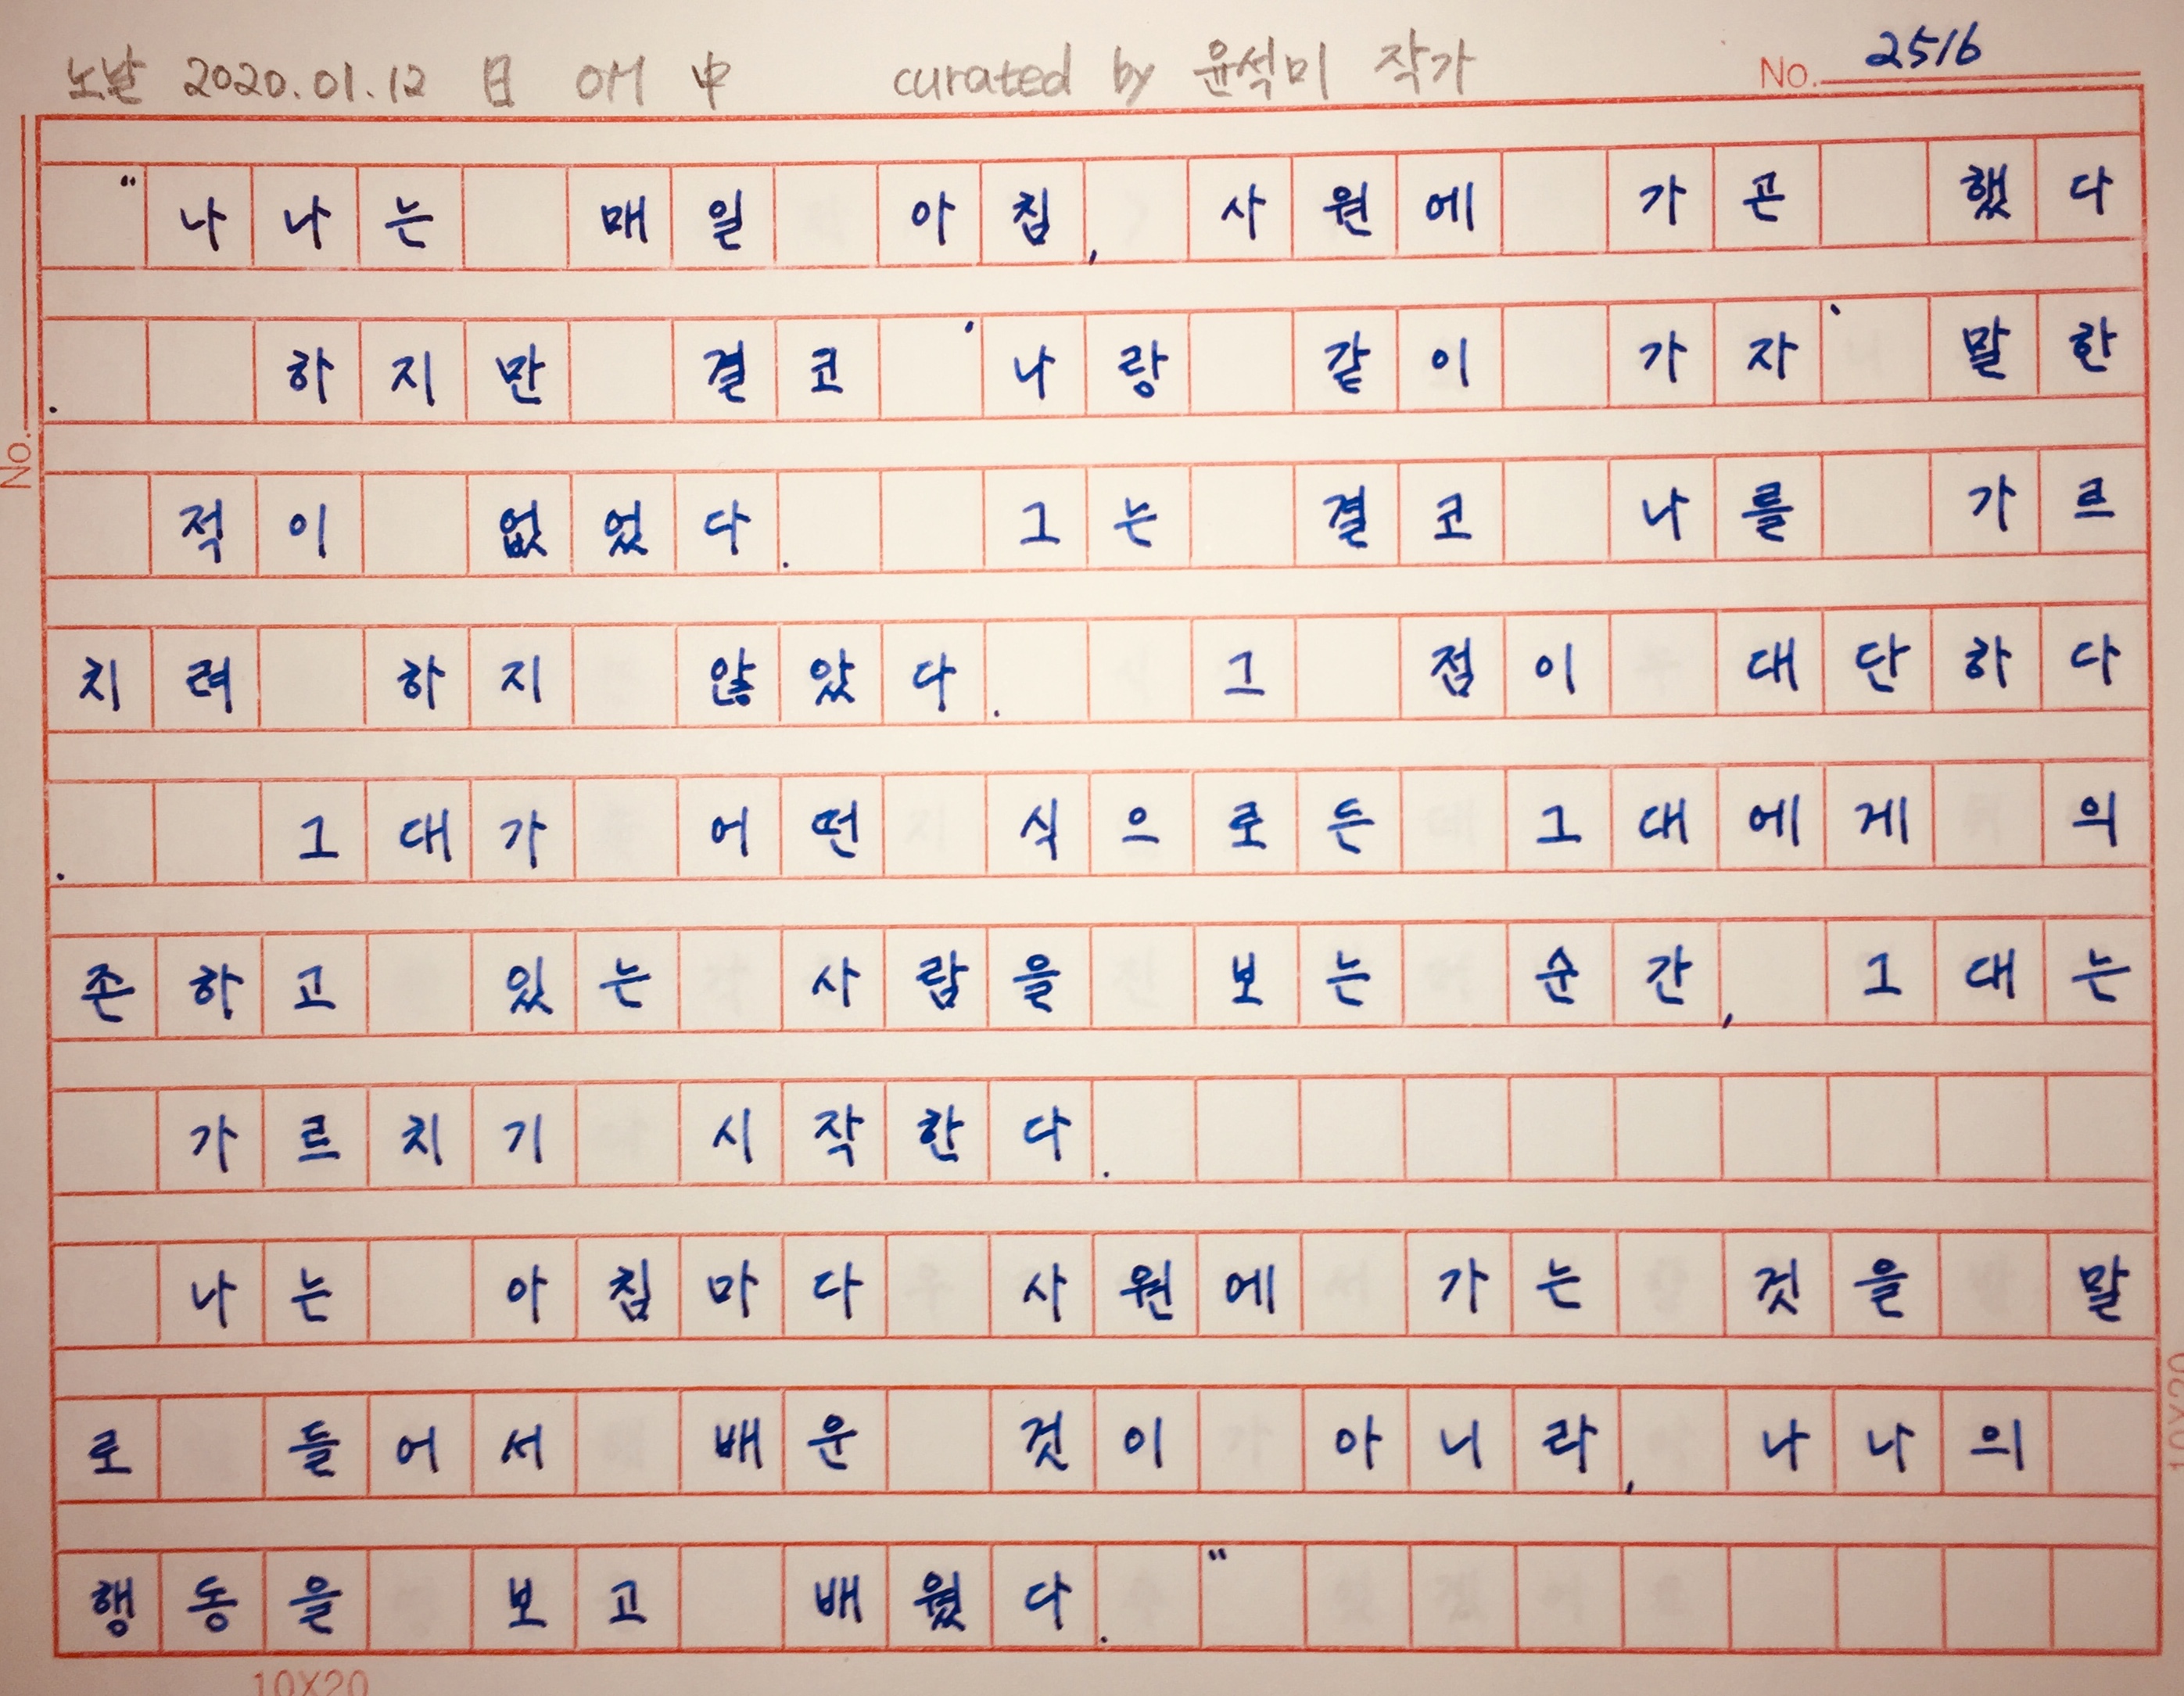 노날 2020.01.12 日 OM 中 curated by 윤석미 작가 No. 2516
“나나는 매일 아침, 사원에 가곤 했다
. 하지만 결코 ‘나랑 같이 가자’ 말한
적이 없었다. 그는 결코 나를 가르
치려 하지 않았다. 그 점이 대단하다
. 그대가 어떤 식으로든 그대에게 의
존하고 있는 사람을 보는 순간, 그대는
가르치기 시작한다.
나는 아침마다 사원에 가는 것을 말
로 들어서 배운 것이 아니라, 나나의
행동을 보고 배웠다.”
No.
10X20
10X20